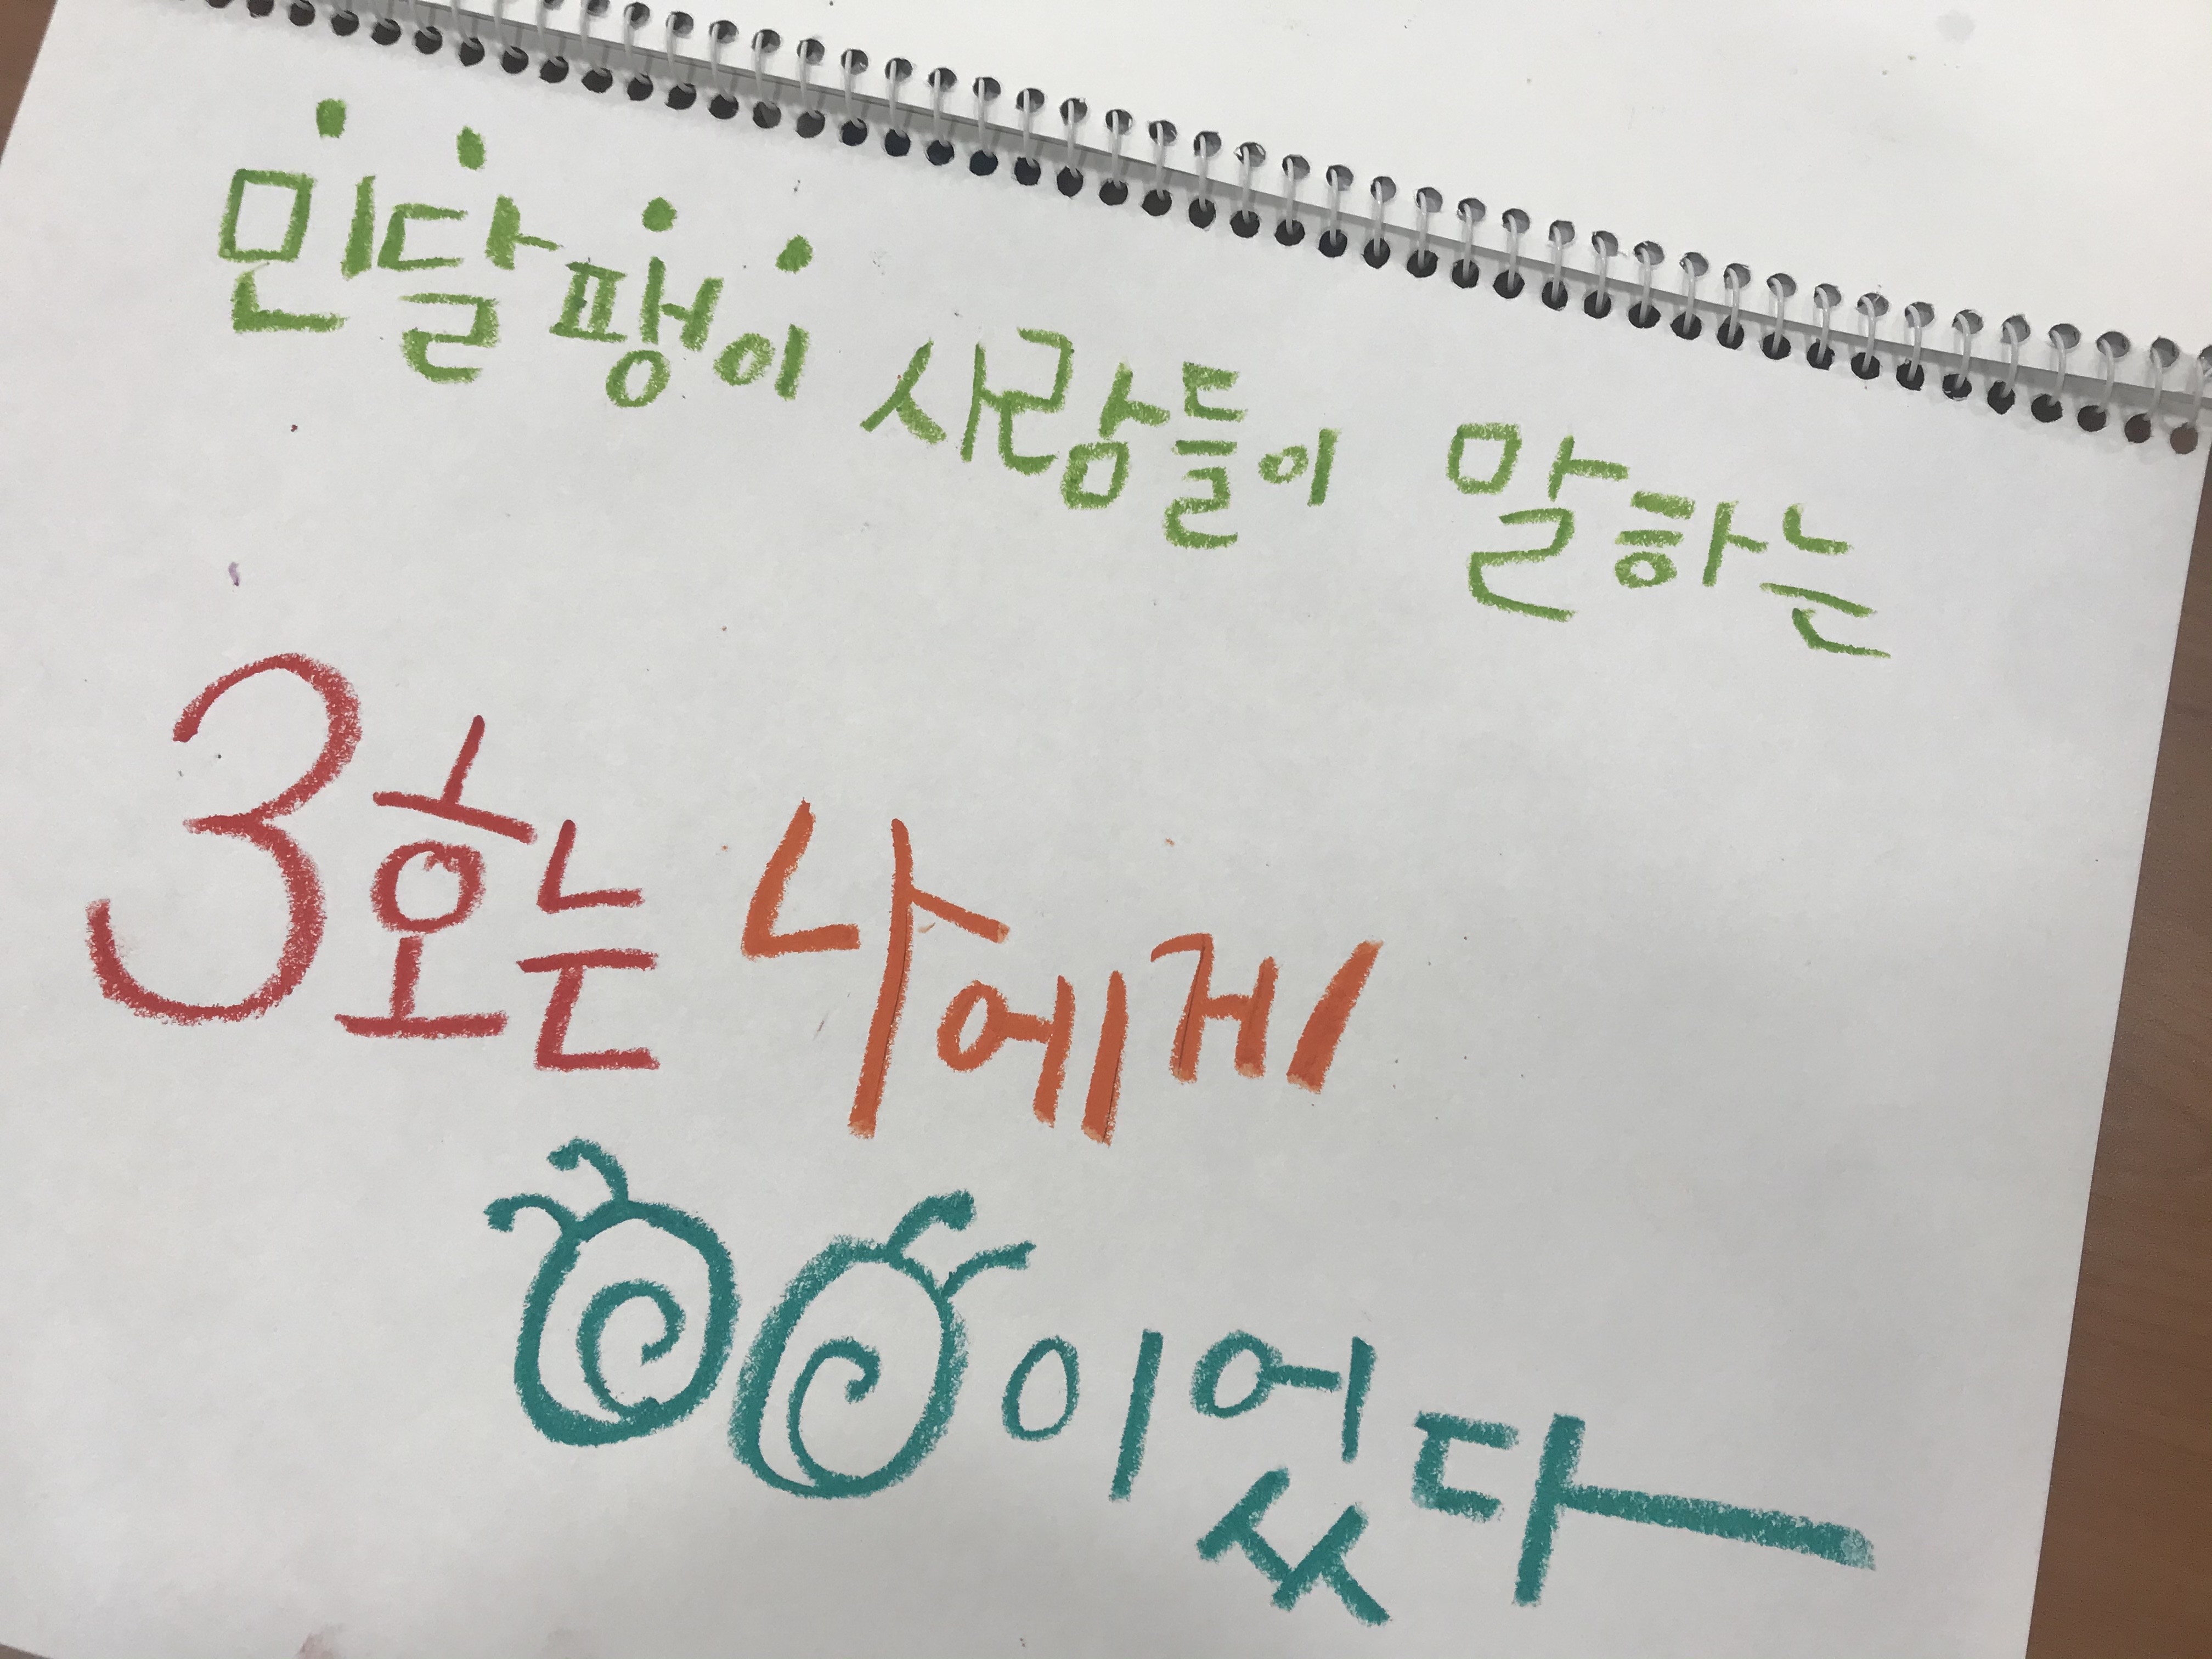 민달팽이 사람들이 말하는
3호는 나에게
ㅇㅇ이었다